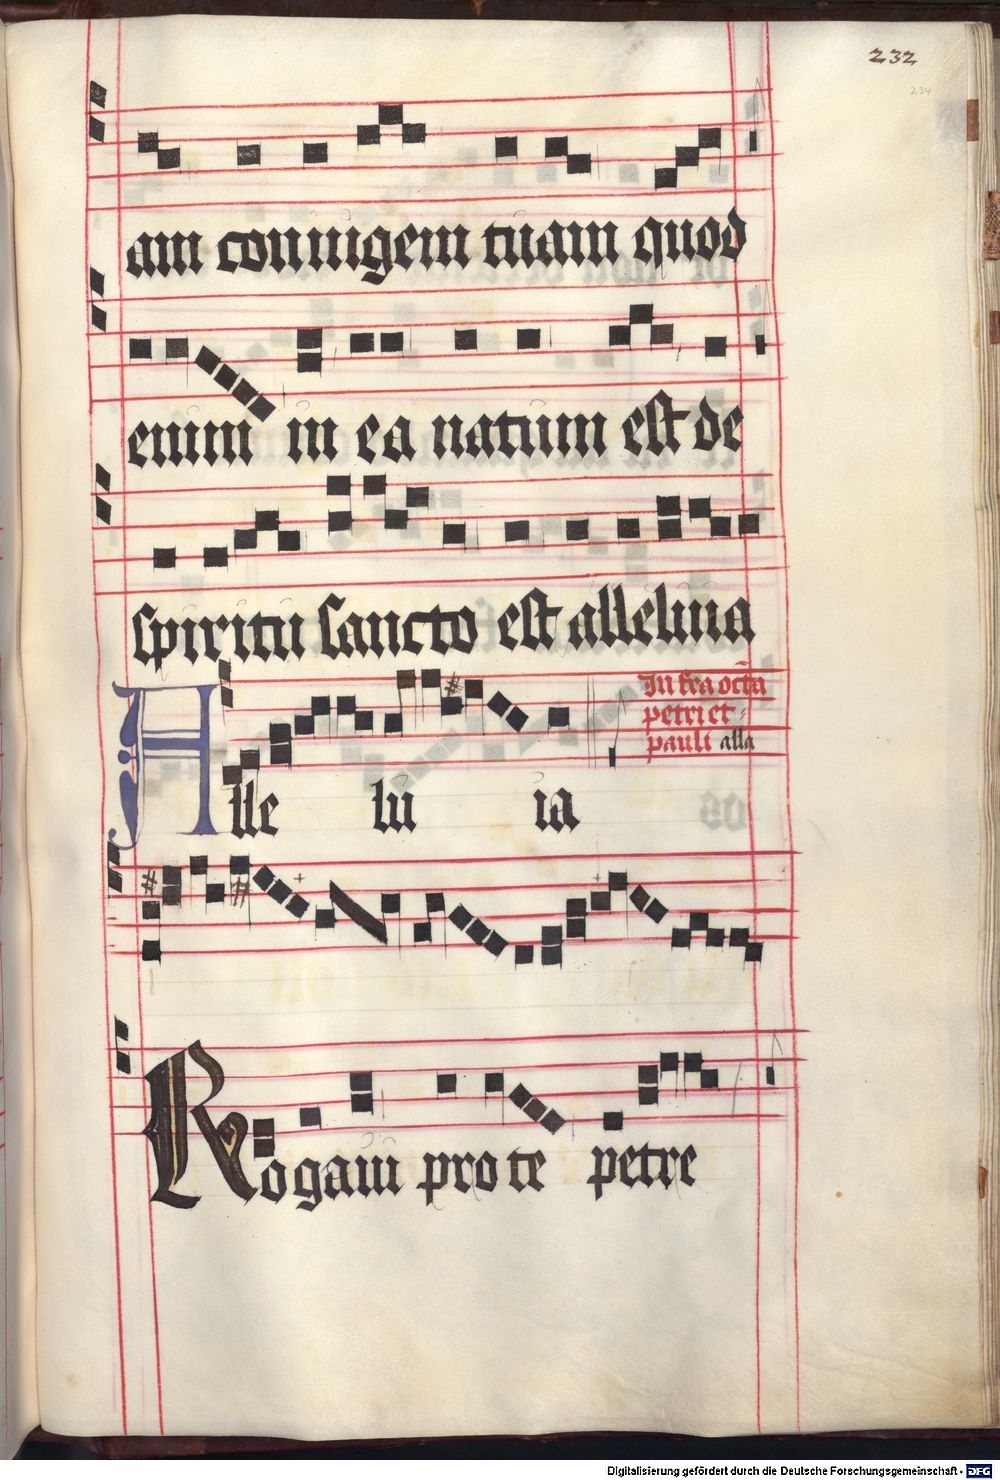 232
234
am coniugem tuam quod
enim in ea natum est de
spiritu sancto est alleluia
In fra octa
petri et
pauli alla
Alle lu ia
Rogavi pro te petre
Digitalisierung gefördert durch die Deutsche Forschungsgemeinschaft - DFG